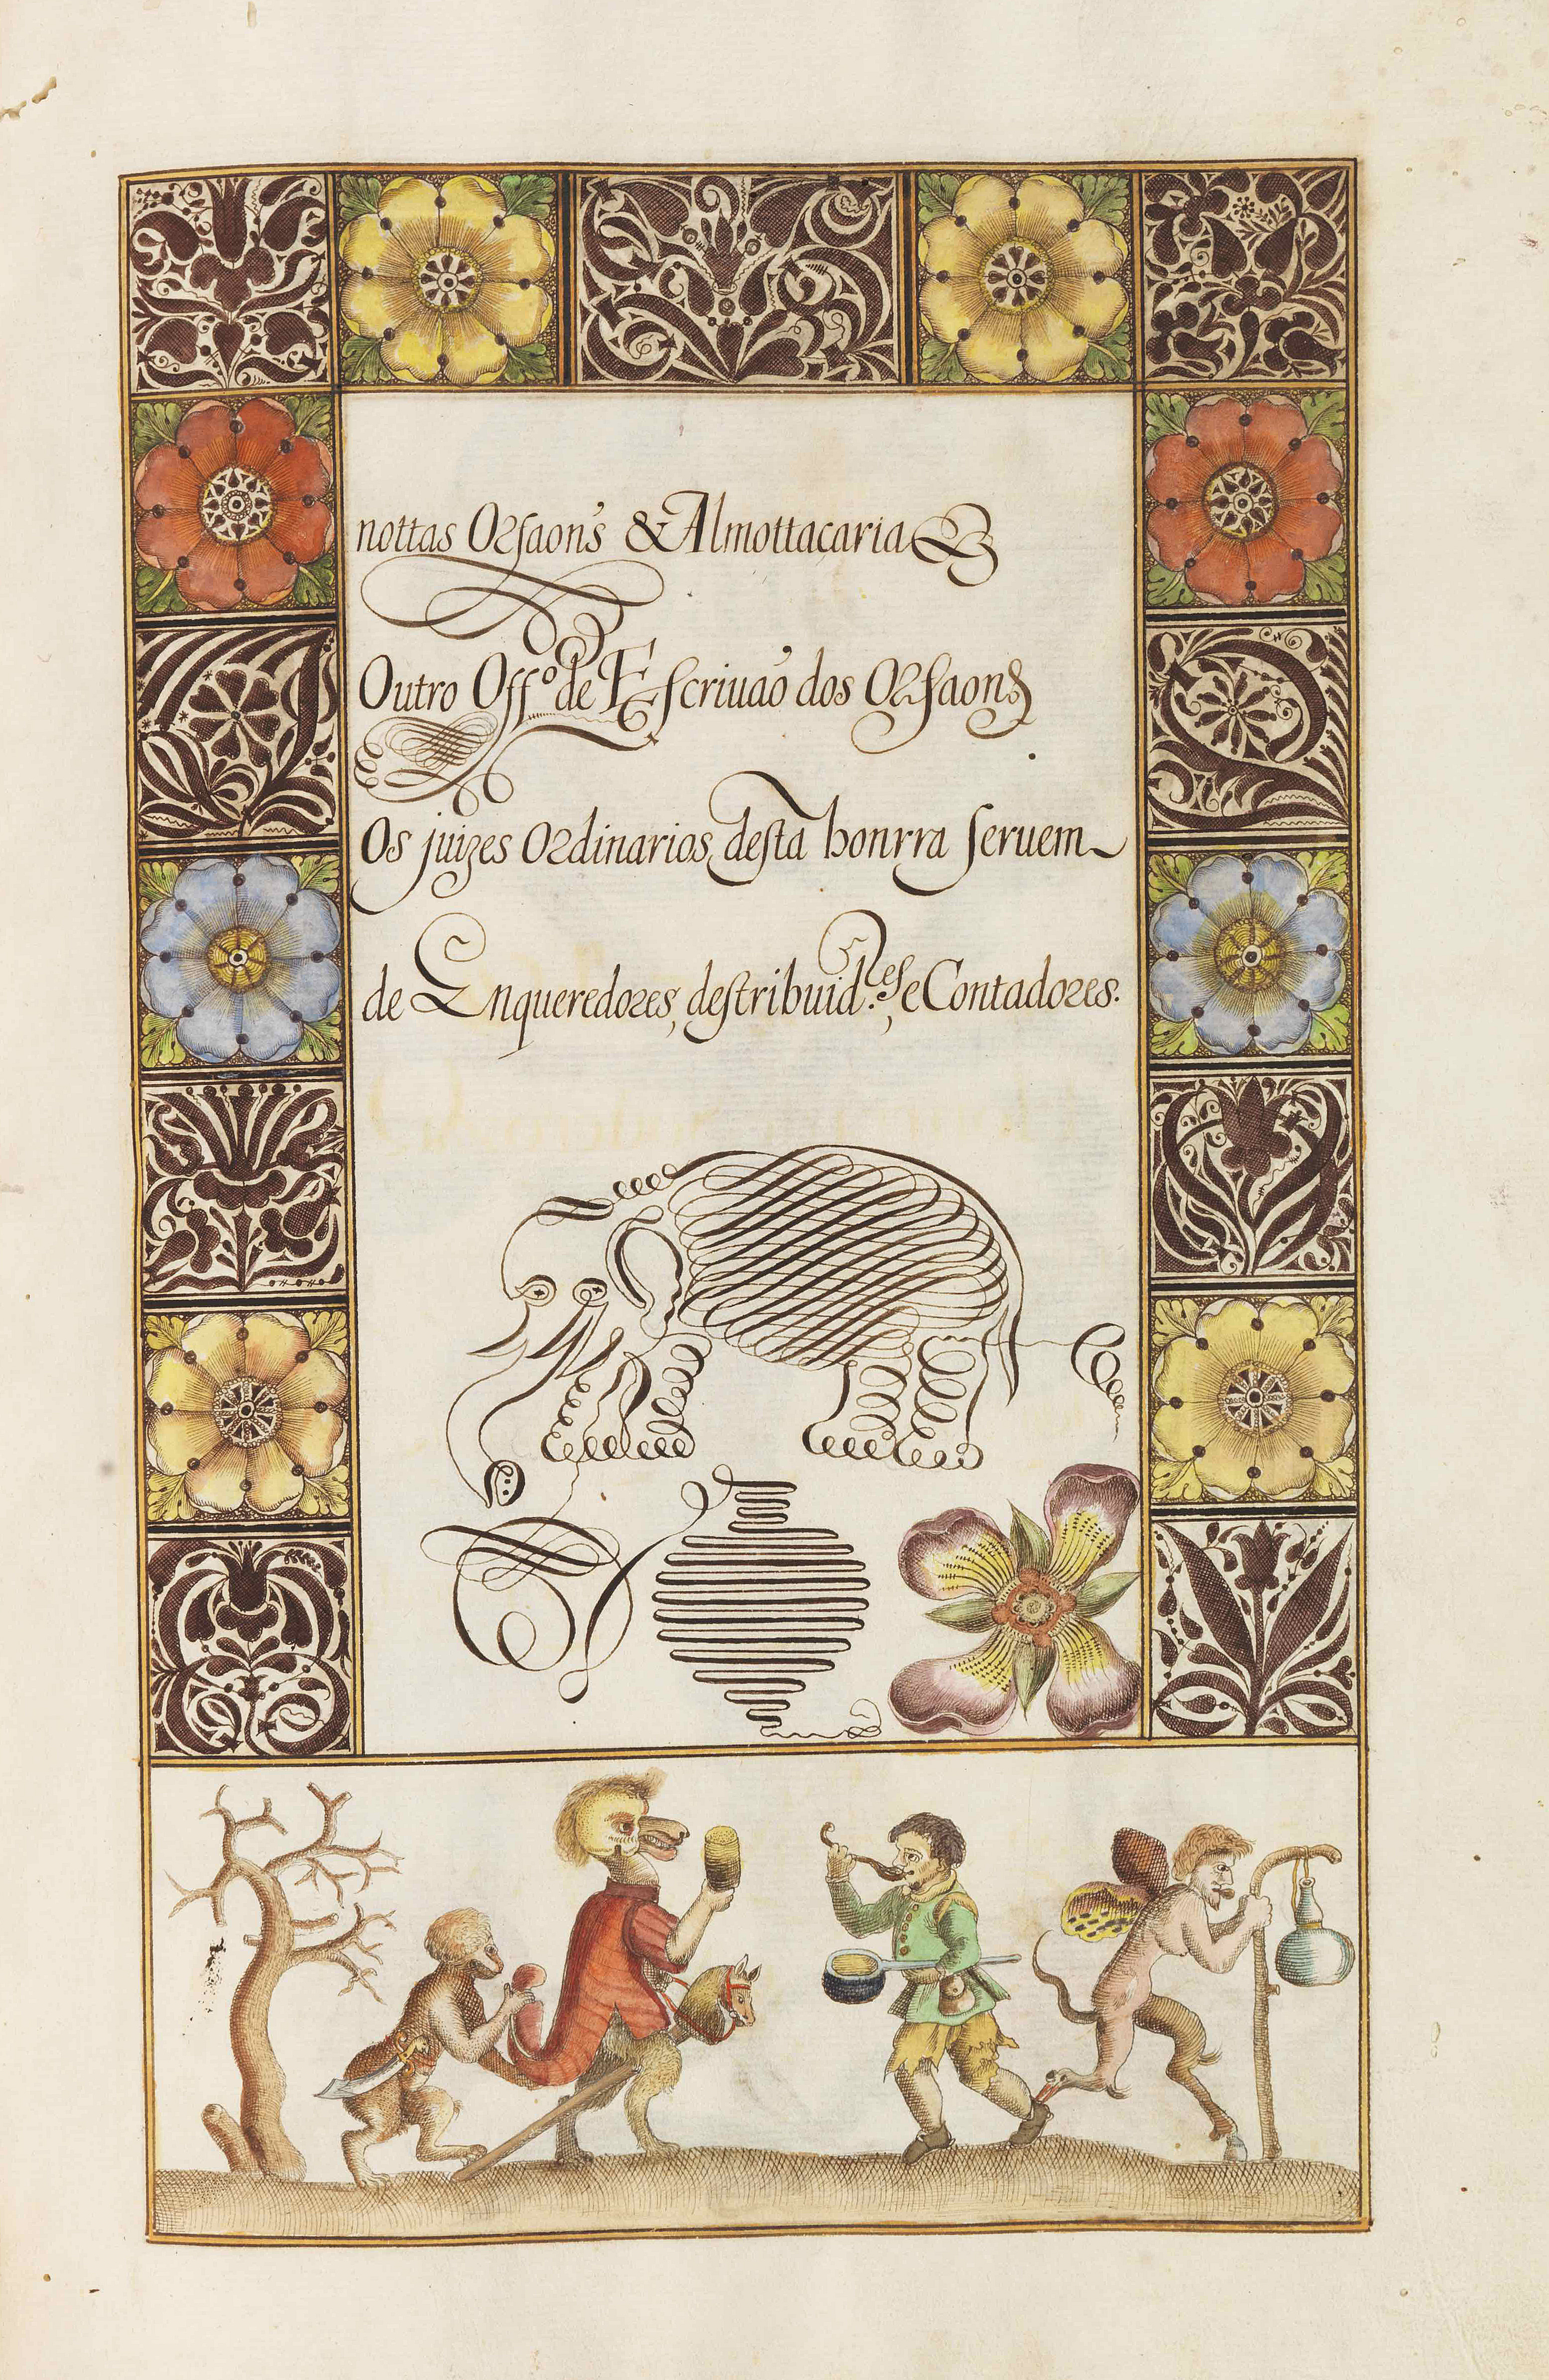 nottas Orfaon's & Almottaçaria &
Outro Off.º de Escriuaõ dos Orfaons
Os juizes Ordinarios, desta honrra seruem
de Enqueredores, destribuid.res, e Contadores.